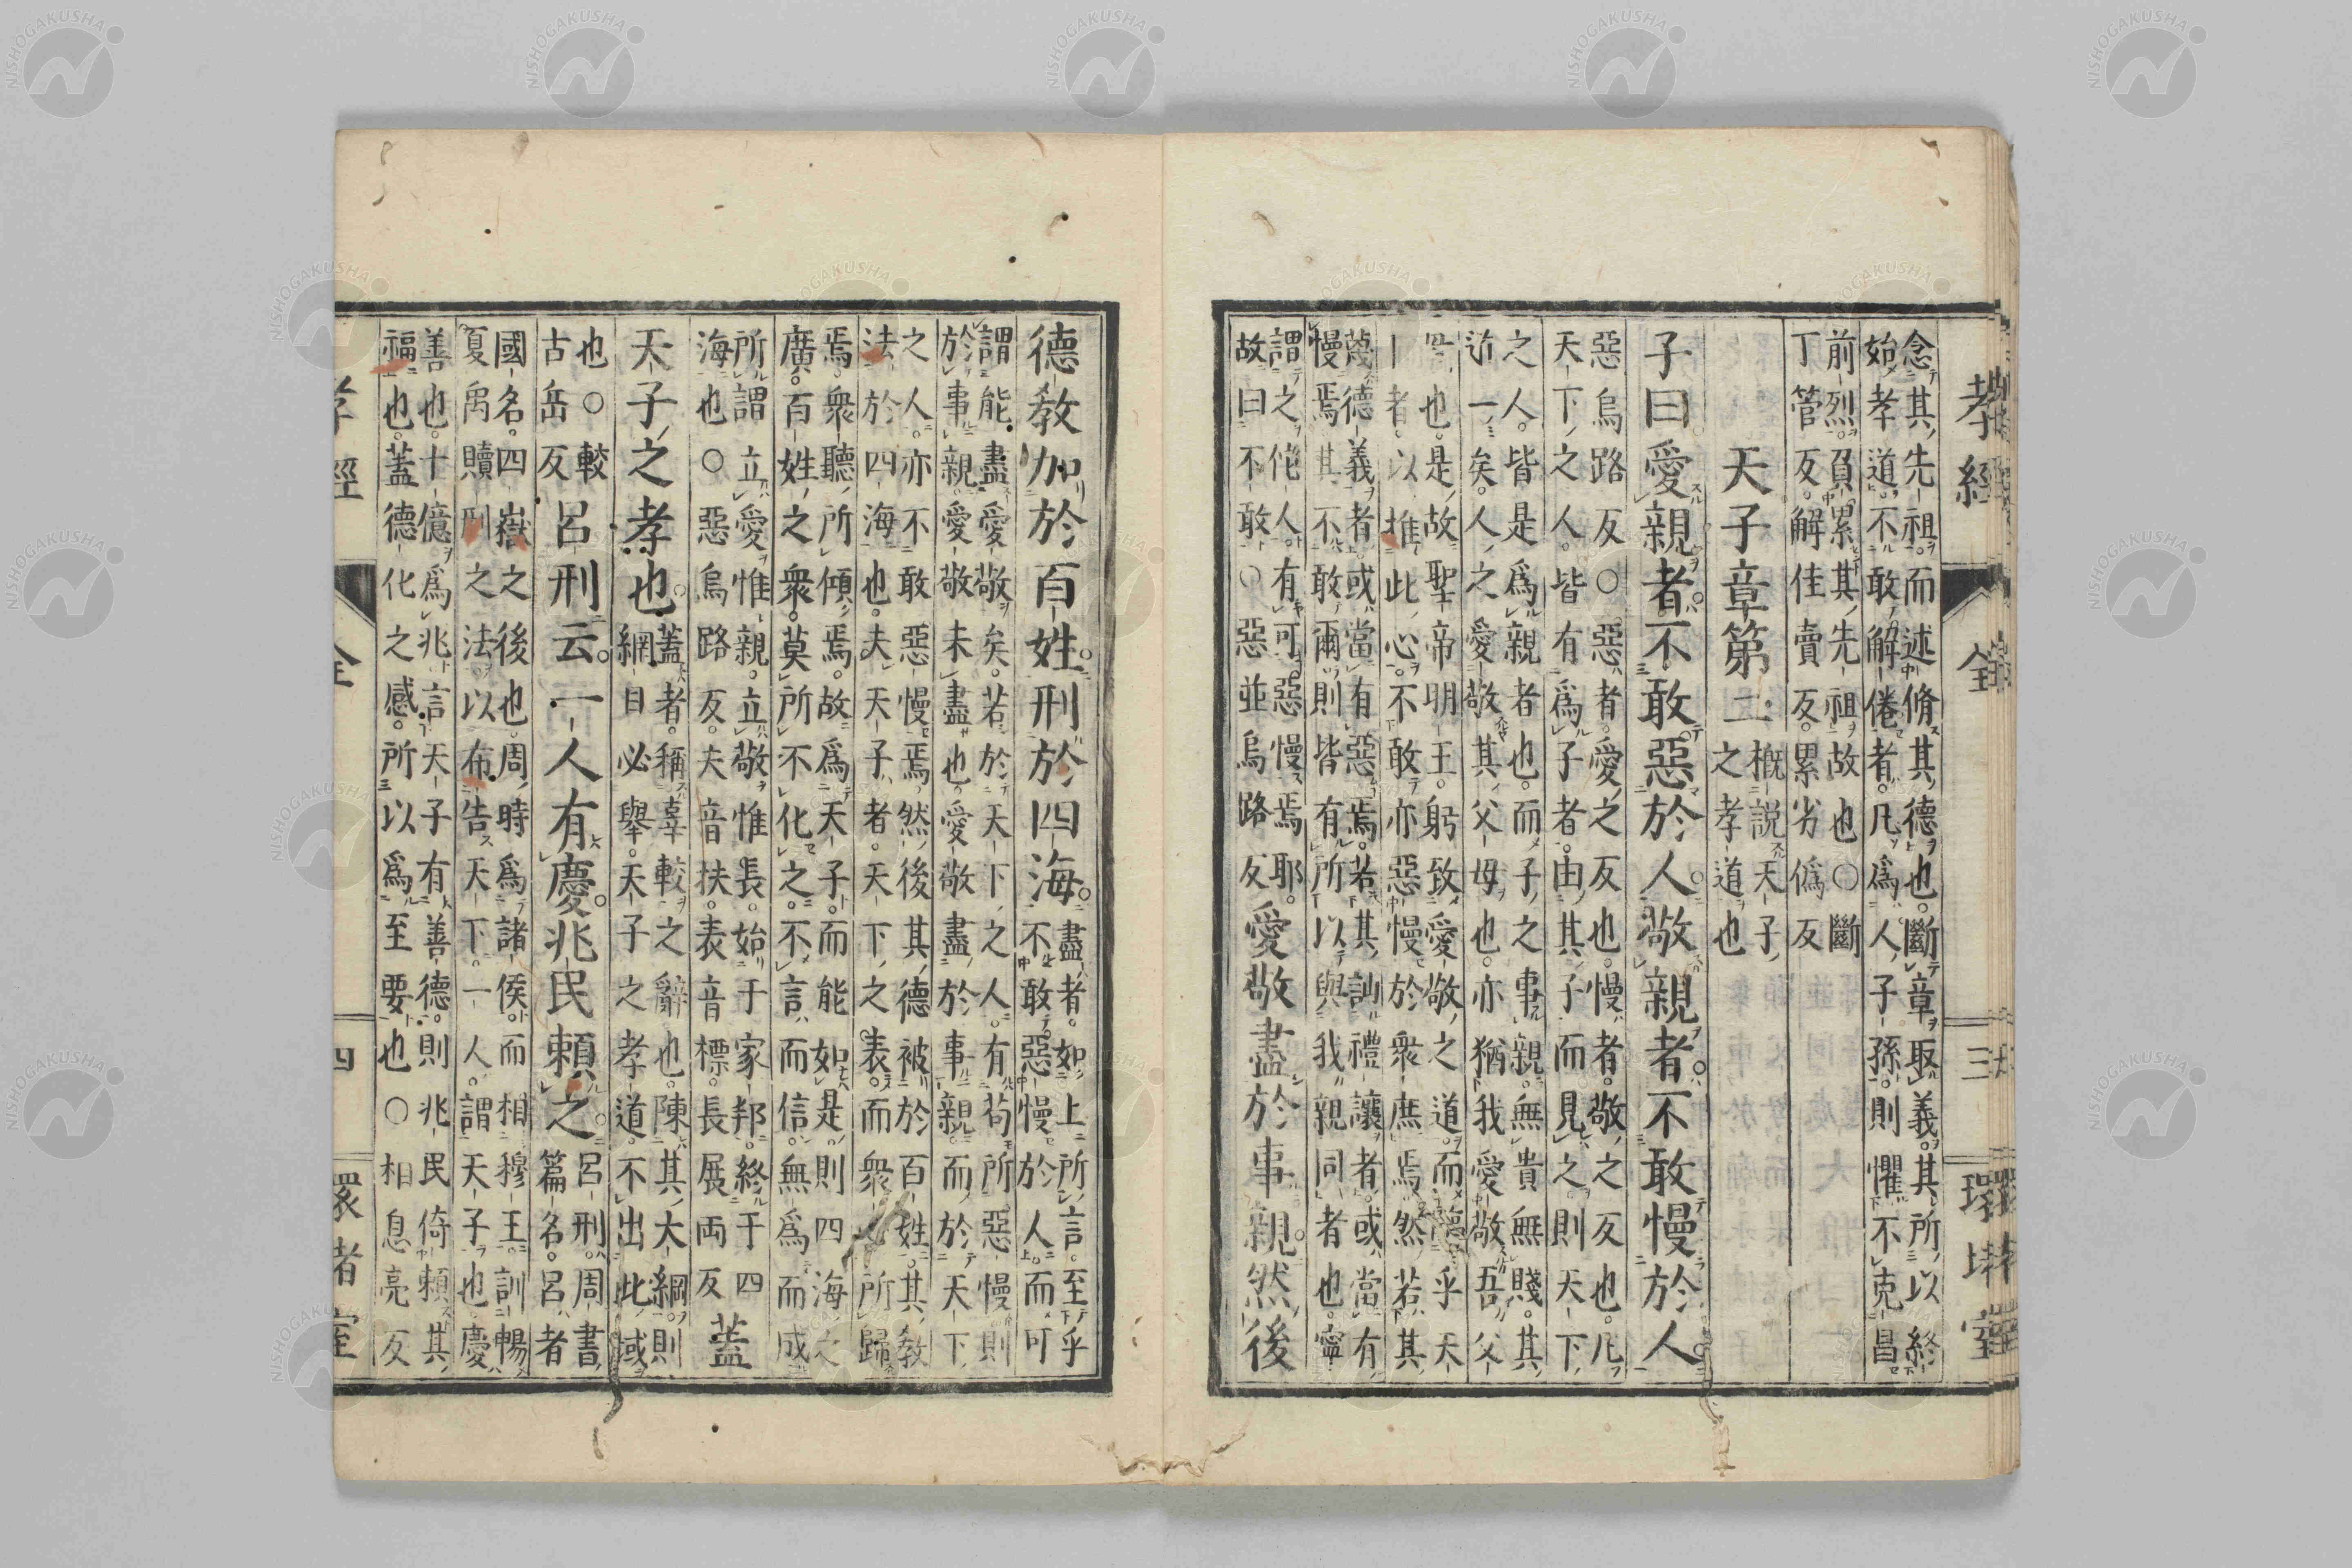 孝經
全
三
環堵室
念其先祖而述脩其德也斷章取義其所以終
始孝道不敢解倦者凡爲人子孫則懼不克昌
前烈負累其先祖故也○斷
丁管反解佳賣反累劣僞反
天子章第二
槪說天子
之孝道也
子曰愛親者不敢惡於人敬親者不敢慢於人
惡烏路反○惡者愛之反也慢者敬之反也凡
天下之人皆有爲子者由其子而見之則天下
之人皆是爲親者也而子之事親無貴無賤其
一矣人之愛敬其父母也亦猶我愛敬吾父
也是故聖帝明王躬致愛敬之道而臨乎天
者以推此心不敢亦惡慢於衆庶焉然若其
蔑德義者或當有惡焉若其訕禮讓者或當有
慢焉其不敢爾則皆有所以與我親同者也寧
謂之佗人有可惡慢焉耶
故曰不敢○惡並烏路反
愛敬盡於事親然後
德敎加於百姓刑於四海
盡者如上所言至乎
不敢惡慢於人而可
謂能盡愛敬矣若於天下之人有苟所惡慢則
於事親愛敬未盡也愛敬盡於事親而於天下
之人亦不敢惡慢焉然後其德被於百姓其敎
法於四海也夫天子者天下之表而衆必所歸
焉衆聽所傾焉故爲天子而能如是則四海之
廣百姓之衆莫所不化之不言而信無爲而成
所謂立愛惟親立敬惟長始于家邦終于四
海也○惡烏路反夫音扶表音標長展両反
蓋
天子之孝也
蓋者稱辜較之辭也陳其大綱則
網目必舉天子之孝道不出此域
也○較
古岳反
呂刑云一人有慶兆民賴之
呂刑周書
篇名呂者
國名四嶽之後也周時爲諸侯而相穆王訓暢
夏禹贖刑之法以布告天下一人謂天子也慶
善也十億爲兆言天子有善德則兆民倚賴其
福也蓋德化之感所以爲至要也○相息亮反
孝經
全
四
環堵室